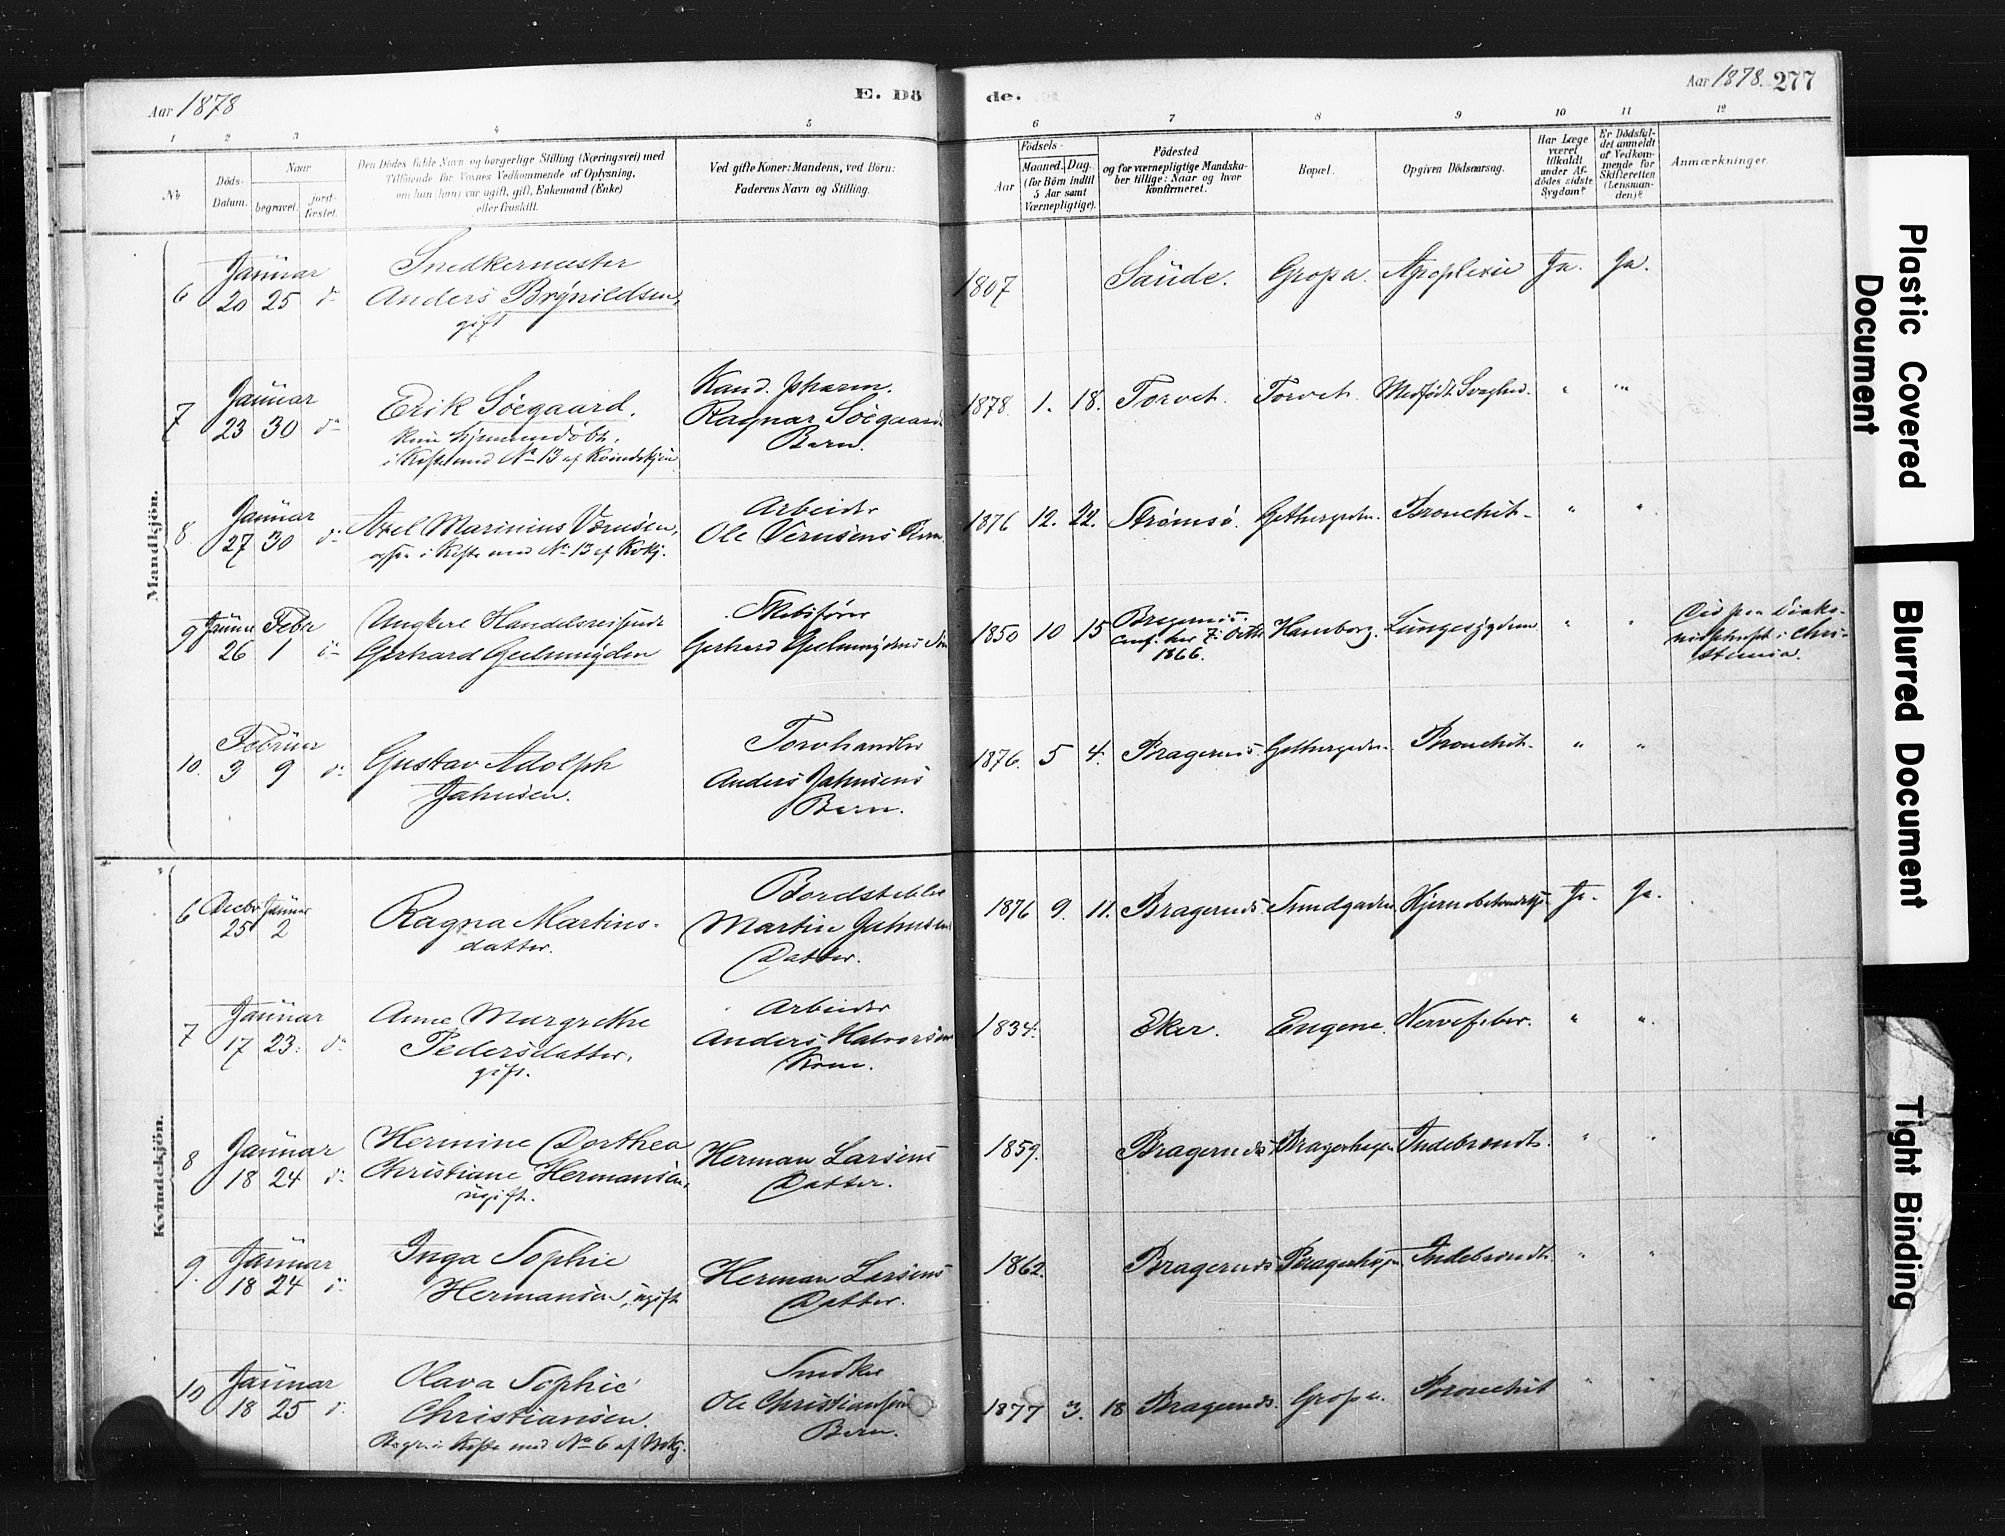 Aar 1878
E. Dö
de.
Aar 1878. 277
1 2 3 4 5 6 7 8 9 10 11 12
No
Döds-
Datum.
Naar
begravet.
jord-
fæstet.
Den Dödes fulde Navn og borgerlige Stilling (Næringsvei) med
Tilföiende for Voxnes Vedkommende af Oplysning,
om han (hun) var ugift, gift, Enkemand (Enke)
eller fraskilt.
Ved gifte Koner: Mandens, ved Börn:
Faderens Navn og Stilling.
Födsels-
Aar
Maaned.
Dag.
(for Börn indtil
5 Aar samt
Værnepligtige).
Födested
og for værnepligtige Mandska-
ber tillige: Naar og hvor
konfirmeret.
Bopæl.
Opgiven Dödsaarsag.
Har Læge
været
tilkaldt
under Af-
dödes sidste
Sygdom?
Er Dödsfal-
det anmeldt
af Vedkom-
mende for
Skifteretten
(Lensman-
den)?
Anmærkninger.
Mandkjön.
6 Januar 20 25 do
Snedkermester
Anders Brynildsen,
gift
1807 Saude. Gropa. Apoplexie Ja. Ja.
7 Januar 23 30 do
Erik Söegaard.
kun hjemmedöbt,
i Kiste med No 13 af Kvindekjön
Kand. pharm.
Ragnar Söegaards
Barn.
1878. 1. 18. Torvet. Torvet. Medfödt Svaghed. " "
8 Januar 27 30 do
Axel Marinius Vernsen,
ogsaa i Kiste med No 13 af Kvkj.
Arbeider
Ole Vernsens Barn.
1876 12. 22. Strømsø. Gethergaden. Bronchit. " "
9 Januar Febr 26 1 do
Ungkarl Handelsreisende
Gerhard Geelmuyden
Skibsfører
Gerhard Geelmuydens Søn
1850 10 15 Bragernes.
conf. her 7. Octbr
1866.
Hamborg. Lungesygdom " "
Død paa Diako-
nisehuset i Chri-
stiania.
10. Februar 3 9 do
Gustav Adolph
Jahnsen.
Torvhandler
Anders Jahnsens
Barn.
1876. 5 4. Bragernes. Gethergaden. Bronchit. " "
Kvindekjön.
6 Decbr Januar 25 2
Ragna Martins-
datter.
Bordstabler
Martin Jahnsens
Datter.
1876 9. 11. Bragernes. Sundgaden. Hjernebetændelse Ja. Ja.
7 Januar 17 23. do
Anne Margrethe
Pedersdatter,
gift.
Arbeider
Anders Halvorsens
Kone.
1834. Eker. Engene. Nervefeber. " "
8 Januar 18 24 do
Hermine Dorthea
Christiane Hermansen,
ugift.
Herman Larsens
Datter.
1859. Bragernes Bragerhagen Indebrændt. " "
9. Januar 18 24 do
Inga Sophie
Hermansen, ugift
Herman Larsens
Datter.
1862. Bragernes Bragerhagen Indebrændt. " "
10 Januar 18 25 do
Olava Sophie
Christiansen.
Kiste med No 6 af Mkj.
Snedker
Ole Christiansens
Barn.
1877 3. 18 Bragernes. Gropa. Bronchit " "
Plastic Covered Document
Blurred Document
Tight Binding